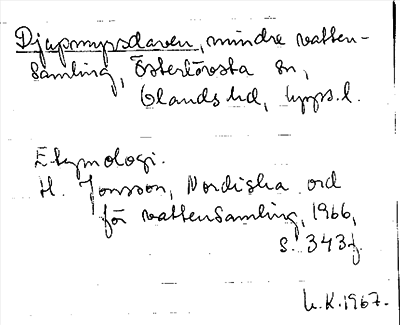 Djupmyrsdaven, mindre vatten-
samling, Österlövsta sn,
Olands hd, Upps.l.
Etymologi.
H. Jonsson, Nordiska ord
för vattensamling, 1966,
s. 343f.
L.K.1967.